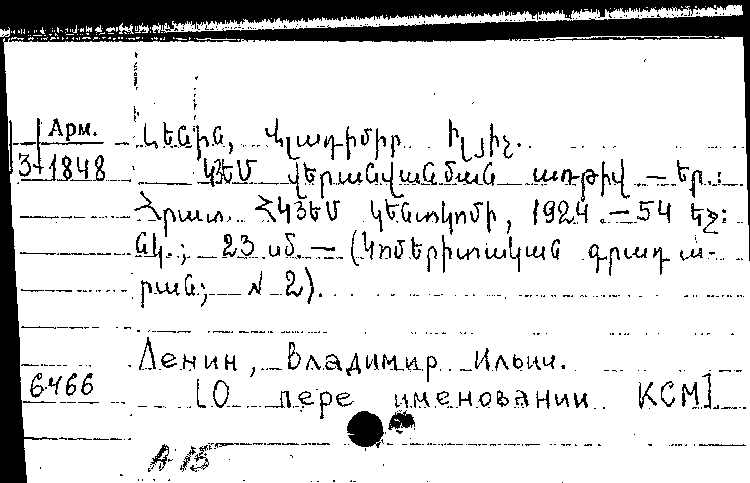 Арм.
3-1848
Լենին, Վլադիմիր Իլյիչ.
ԿՅԵՄ վերանվանման առթիվ — Եր.:
Հրատ. ՀԿՅԵՄ կենտկոմի, 1924. — 54 էջ:
նկ.; 23 սմ. — (Կոմերիտական գրադա-
րան; № 2).
Ленин, Владимир Ильич.
[О переименовании КСМ].
6466
А 15